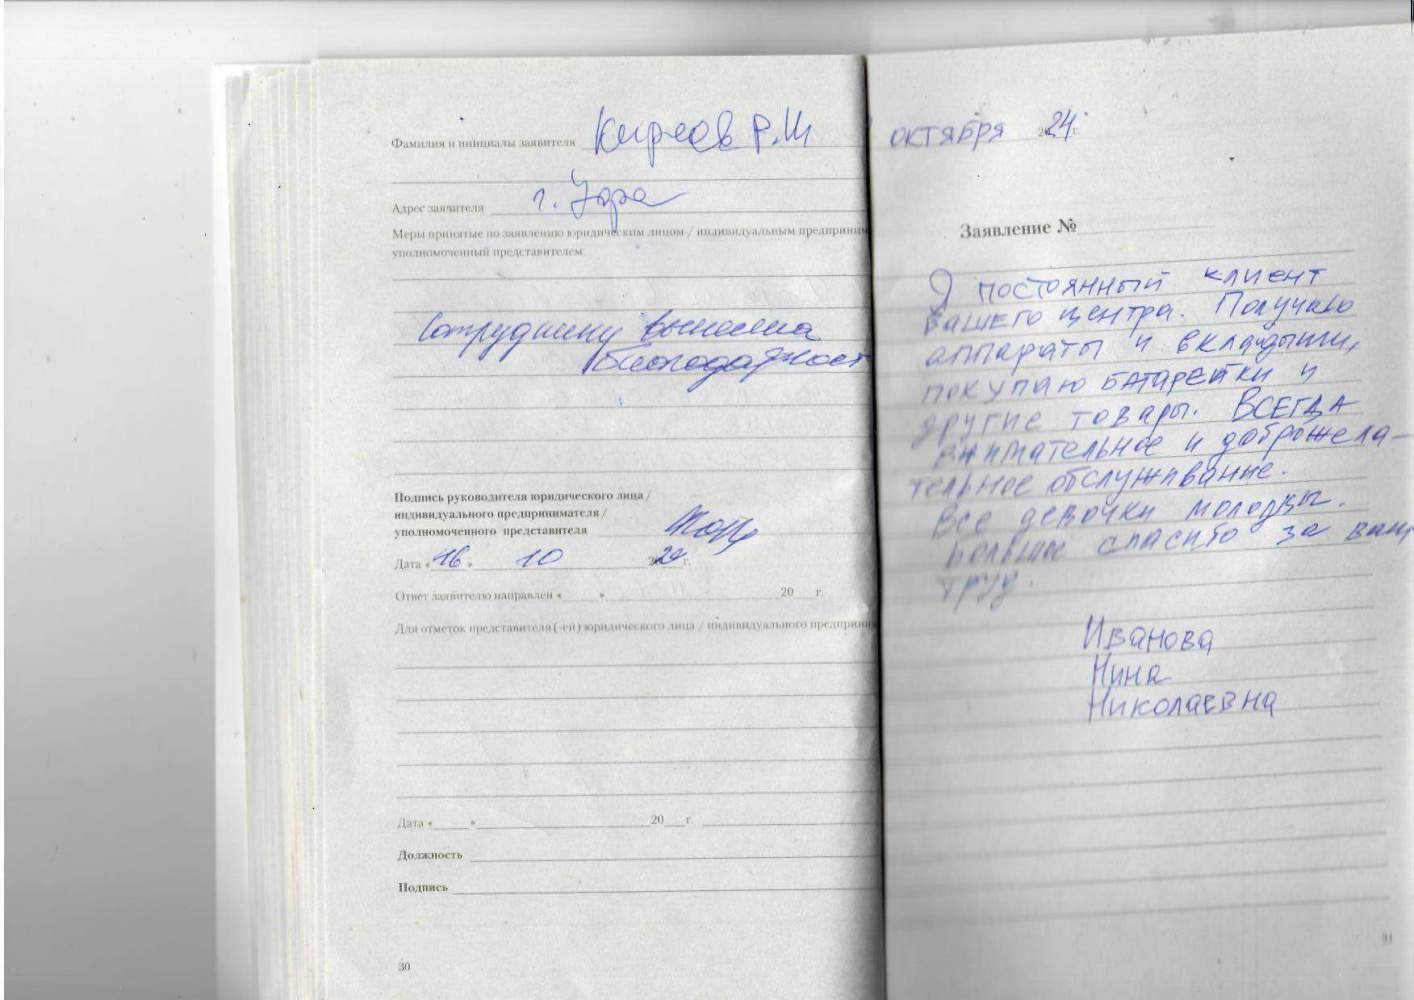 Фамилия и инициалы заявителя Киреев Р.Ш
Адрес заявителя г. Уфа
Меры принятые по заявлению юридическим лицом / индивидуальным предприним
уполномоченный представителем:
Сотруднику вынесена
благодарност
Подпись руководителя юридического лица /
индивидуального предпринимателя /
уполномоченного представителя
Дата « 16 » 10 г.
Ответ заявителю направлен «    » 20   г.
Для отметок представителя (-ей) юридического лица / индивидуального предприни
Дата «    » 20   г.
Должность
Подпись
30
октября 24 г.
Заявление №
Я постоянный клиент
вашего центра. Получаю
аппараты и вкладыши,
покупаю батарейки и
другие товары. ВСЕГДА
внимательное и доброжела-
тельное обслуживание.
Все девочки молодцы.
Большое спасибо за ваш
труд.
Иванова
Нина
Николаевна
31